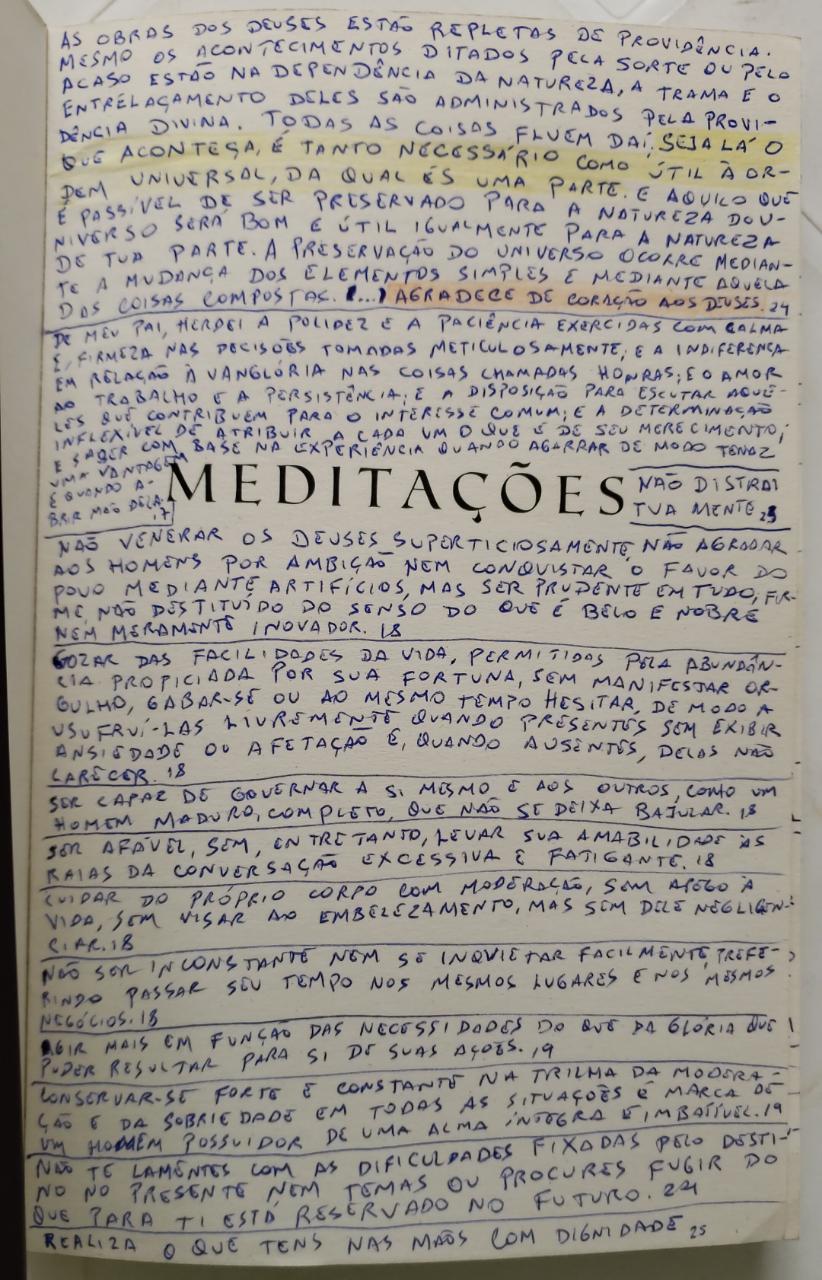 AS OBRAS DOS DEUSES ESTÃO REPLETAS DE PROVIDÊNCIA.
MESMO OS ACONTECIMENTOS DITADOS PELA SORTE OU PELO
ACASO ESTÃO NA DEPENDÊNCIA DA NATUREZA, A TRAMA E O
ENTRELAÇAMENTO DELES SÃO ADMINISTRADOS PELA PROVI-
DÊNCIA DIVINA. TODAS AS COISAS FLUEM DAÍ. SEJA LÁ O
QUE ACONTEÇA, É TANTO NECESSÁRIO COMO ÚTIL À OR-
DEM UNIVERSAL, DA QUAL ÉS UMA PARTE. E AQUILO QUE
É PASSÍVEL DE SER PRESERVADO PARA A NATUREZA DO U-
NIVERSO SERÁ BOM E ÚTIL IGUALMENTE PARA A NATUREZA
DE TUA PARTE. A PRESERVAÇÃO DO UNIVERSO OCORRE MEDIAN-
TE A MUDANÇA DOS ELEMENTOS SIMPLES E MEDIANTE AQUELA
DAS COISAS COMPOSTAS. (...) AGRADECE DE CORAÇÃO AOS DEUSES. 24
DE MEU PAI, HERDEI A POLIDEZ E A PACIÊNCIA EXERCIDAS COM CALMA
E, FIRMEZA NAS DECISÕES TOMADAS METICULOSAMENTE; E A INDIFERENÇA
EM RELAÇÃO À VANGLÓRIA NAS COISAS CHAMADAS HONRAS; E O AMOR
AO TRABALHO E A PERSISTÊNCIA; E A DISPOSIÇÃO PARA ESCUTAR AQUE-
LES QUE CONTRIBUEM PARA O INTERESSE COMUM; E A DETERMINAÇÃO
INFLEXÍVEL DE ATRIBUIR A CADA UM O QUE É DE SEU MERECIMENTO;
E SABER COM BASE NA EXPERIÊNCIA QUANDO AGARRAR DE MODO TENAZ
UMA VANTAGEM
E QUANDO A-
BRIR MÃO DELA. 17
MEDITAÇÕES
NÃO DISTRAI
TUA MENTE. 25
NÃO VENERAR OS DEUSES SUPERTICIOSAMENTE, NÃO AGRADAR
AOS HOMENS POR AMBIÇÃO NEM CONQUISTAR O FAVOR DO
POVO MEDIANTE ARTIFÍCIOS, MAS SER PRUDENTE EM TUDO, FIR-
ME, NÃO DESTITUÍDO DO SENSO DO QUE É BELO E NOBRE
NEM MERAMENTE INOVADOR. 18
GOZAR DAS FACILIDADES DA VIDA, PERMITIDAS PELA ABUNDÂN-
CIA PROPICIADA POR SUA FORTUNA, SEM MANIFESTAR OR-
GULHO, GABAR-SE OU AO MESMO TEMPO HESITAR, DE MODO A
USUFRUÍ-LAS LIVREMENTE QUANDO PRESENTES SEM EXIBIR
ANSIEDADE OU AFETAÇÃO E, QUANDO AUSENTES, DELAS NÃO
CARECER. 18
SER CAPAZ DE GOVERNAR A SI MESMO E AOS OUTROS, COMO UM
HOMEM MADURO, COMPLETO, QUE NÃO SE DEIXA BAJULAR. 18
SER AFÁVEL, SEM, ENTRETANTO, LEVAR SUA AMABILIDADE ÀS
RAIAS DA CONVERSAÇÃO EXCESSIVA E FATIGANTE. 18
CUIDAR DO PRÓPRIO CORPO COM MODERAÇÃO, SEM APEGO À
VIDA, SEM VISAR AO EMBELEZAMENTO, MAS SEM DELE NEGLIGEN-
CIAR. 18
NÃO SER INCONSTANTE NEM SE INQUIETAR FACILMENTE, PREFE-
RINDO PASSAR SEU TEMPO NOS MESMOS LUGARES E NOS MESMOS
NEGÓCIOS. 18
AGIR MAIS EM FUNÇÃO DAS NECESSIDADES DO QUE DA GLÓRIA QUE
PUDER RESULTAR PARA SI DE SUAS AÇÕES. 19
CONSERVAR-SE FORTE E CONSTANTE NA TRILHA DA MODERA-
ÇÃO E DA SOBRIEDADE EM TODAS AS SITUAÇÕES É MARCA DE
UM HOMEM POSSUIDOR DE UMA ALMA ÍNTEGRA E IMBATÍVEL. 19
NÃO TE LAMENTES COM AS DIFICULDADES FIXADAS PELO DESTI-
NO NO PRESENTE NEM TEMAS OU PROCURES FUGIR DO
QUE PARA TI ESTÁ RESERVADO NO FUTURO. 24
REALIZA O QUE TENS NAS MÃOS COM DIGNIDADE 25